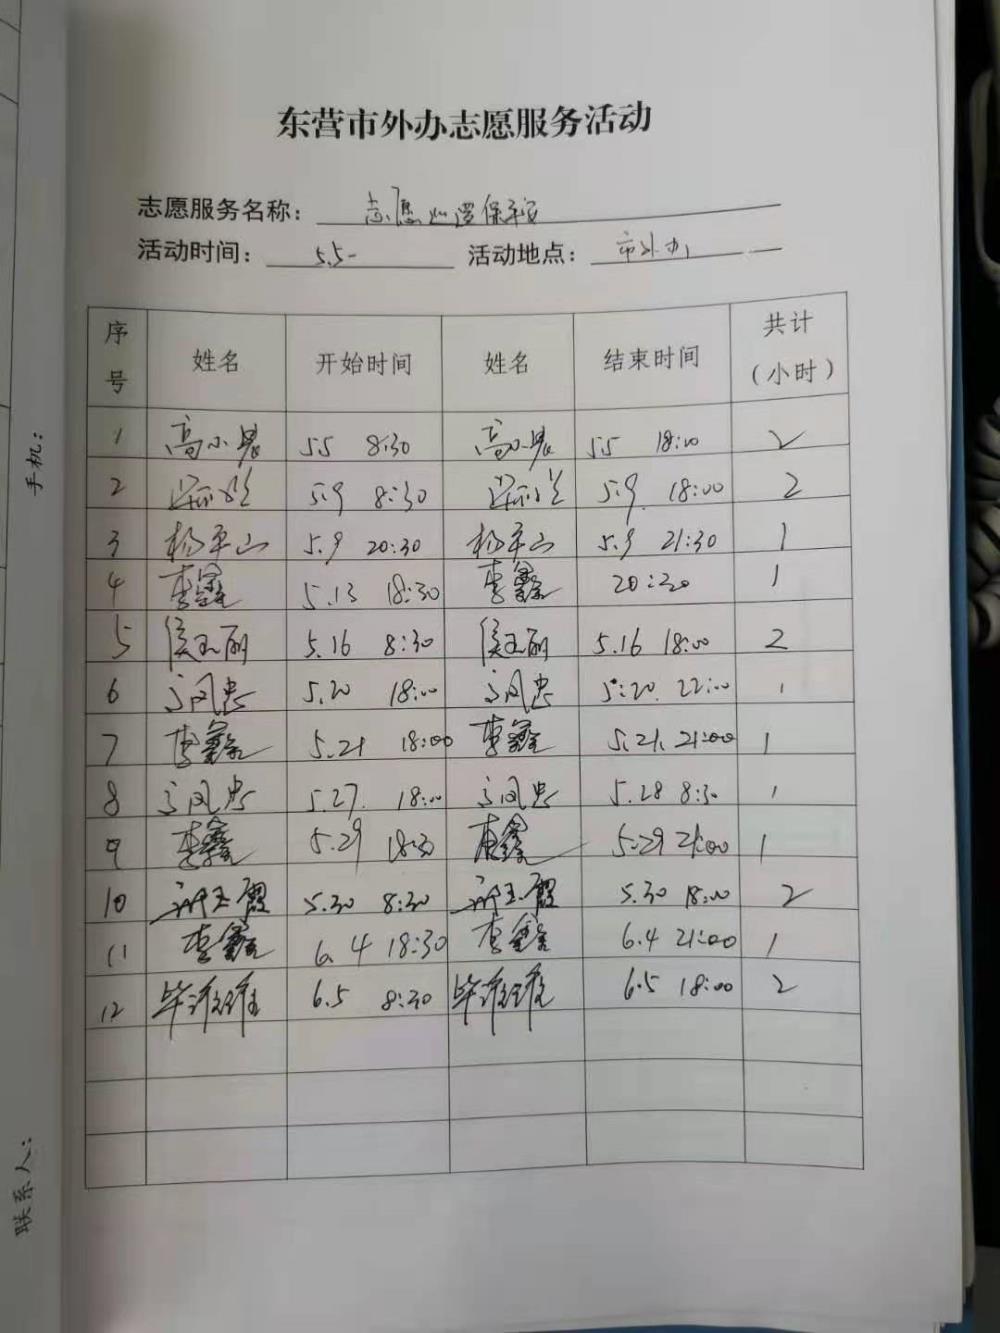 东营市外办志愿服务活动
志愿服务名称： 志愿 保平安
活动时间： 5.5- 活动地点： 市外办
序号 姓名 开始时间 姓名 结束时间 共计（小时）
1 高小 5.5 8:30 高小 5.5 18:00 2
2 5.9 8:30 5.9 18:00 2
3 杨平山 5.9 20:30 杨平山 5.9 21:30 1
4 李鑫 5.13 18:30 李鑫 20:30 1
5 侯玉丽 5.16 8:30 侯玉丽 5.16 18:00 2
6 风忠 5.20 18:00 风忠 5:20 22:00 1
7 李鑫 5.21 18:00 李鑫 5.21. 21:00 1
8 风忠 5.27. 18:00 风忠 5.28 8:30 1
9 李鑫 5.29 18:30 李鑫 5.29 21:00 1
10 许玉霞 5.30 8:30 许玉霞 5.30 18:00 2
11 李鑫 6.4 18:30 李鑫 6.4 21:00 1
12 毕 6.5 8:30 毕 6.5 18:00 2
手机：
联系人：